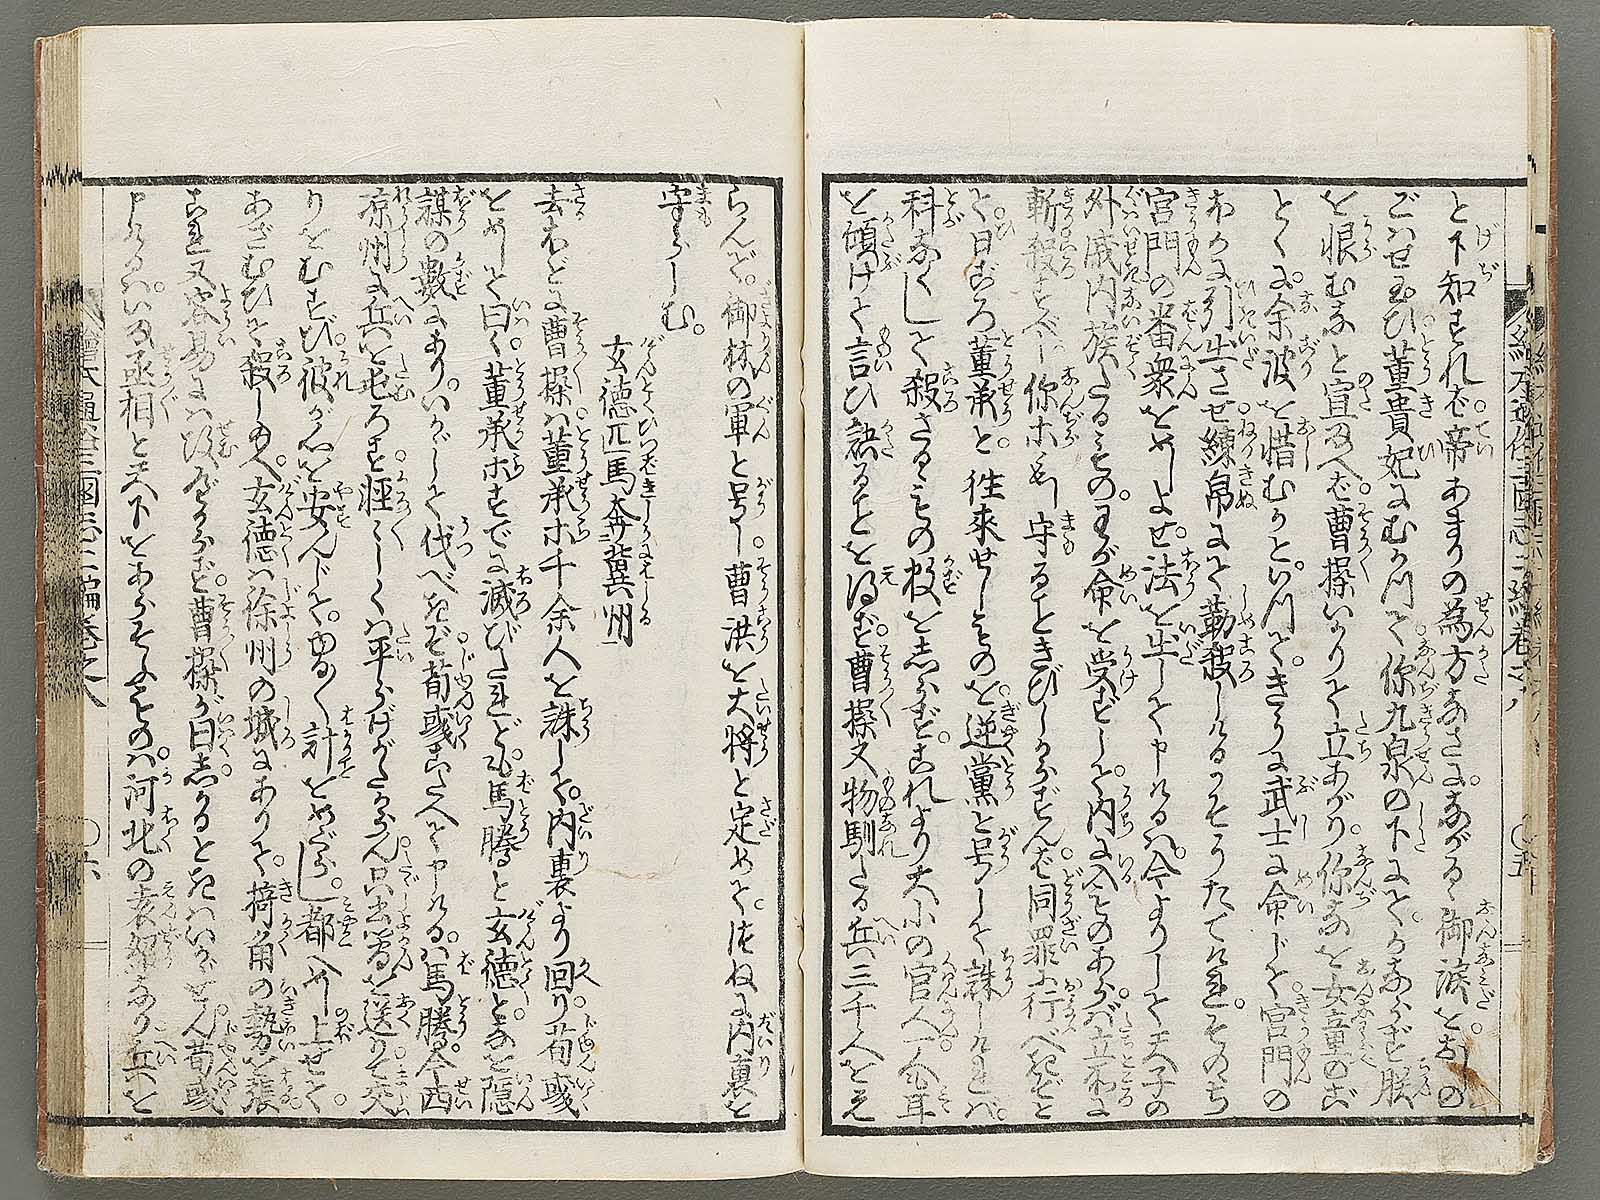 と下知すれば。帝あまりの為方なさに。ながるゝ御涙をおしの
ごはせ玉ひ董貴妃にむかつて你九泉の下にて。かならず朕
を恨むなと宣へば曹操いかりて立あがり。你なを女童のご
とくに。余波を惜むかといつて。きうに武士に命じて。宮門の
わきに引出させ練帛にて勒殺しける
宮門の番衆をめしよせ。法を出して申けるは。今よりして天子の
外戚内族たるもの。わが命を受ずして。内に入ものあらば立所に
斬殺すべし你ホもし守ることきびしからずんば同罪に行べきぞと
と日ごろ董承と。往来せしものを。逆黨と号して誅しければ。
科なくして殺さるゝもの数をしらず。これより大小の官人一人も耳
を傾けて言ひ訣ることを得ず。曹操又物馴たる兵三千人をえ
らんで。御林の軍と号し。曹洪を大将と定めて。つねに内裏を
守らしむ。
玄徳匹馬奔冀州
去ほどに曹操は董承ホ千余人を誅して。内裏より回り荀彧
をめして曰く。董承ホすでに滅びたれど。馬騰と玄徳と。なを隠
謀の数にあり。いかゞして伐べきぞ。荀彧こたへて申けるは。馬騰今西
涼州に兵を屯ろす。軽〳〵しくは平らげがたからん。只書簡を送りて交
りをむすび彼が心を安んじて。ゆるく計をめぐらし。都へめし上せて。
あざむひて殺し玉へ。玄徳は徐州の城にありて。掎角の勢を張
これ又容易には攻べからず。曹操が曰しかるときはいかゞせん荀彧
河北の袁紹なり兵を